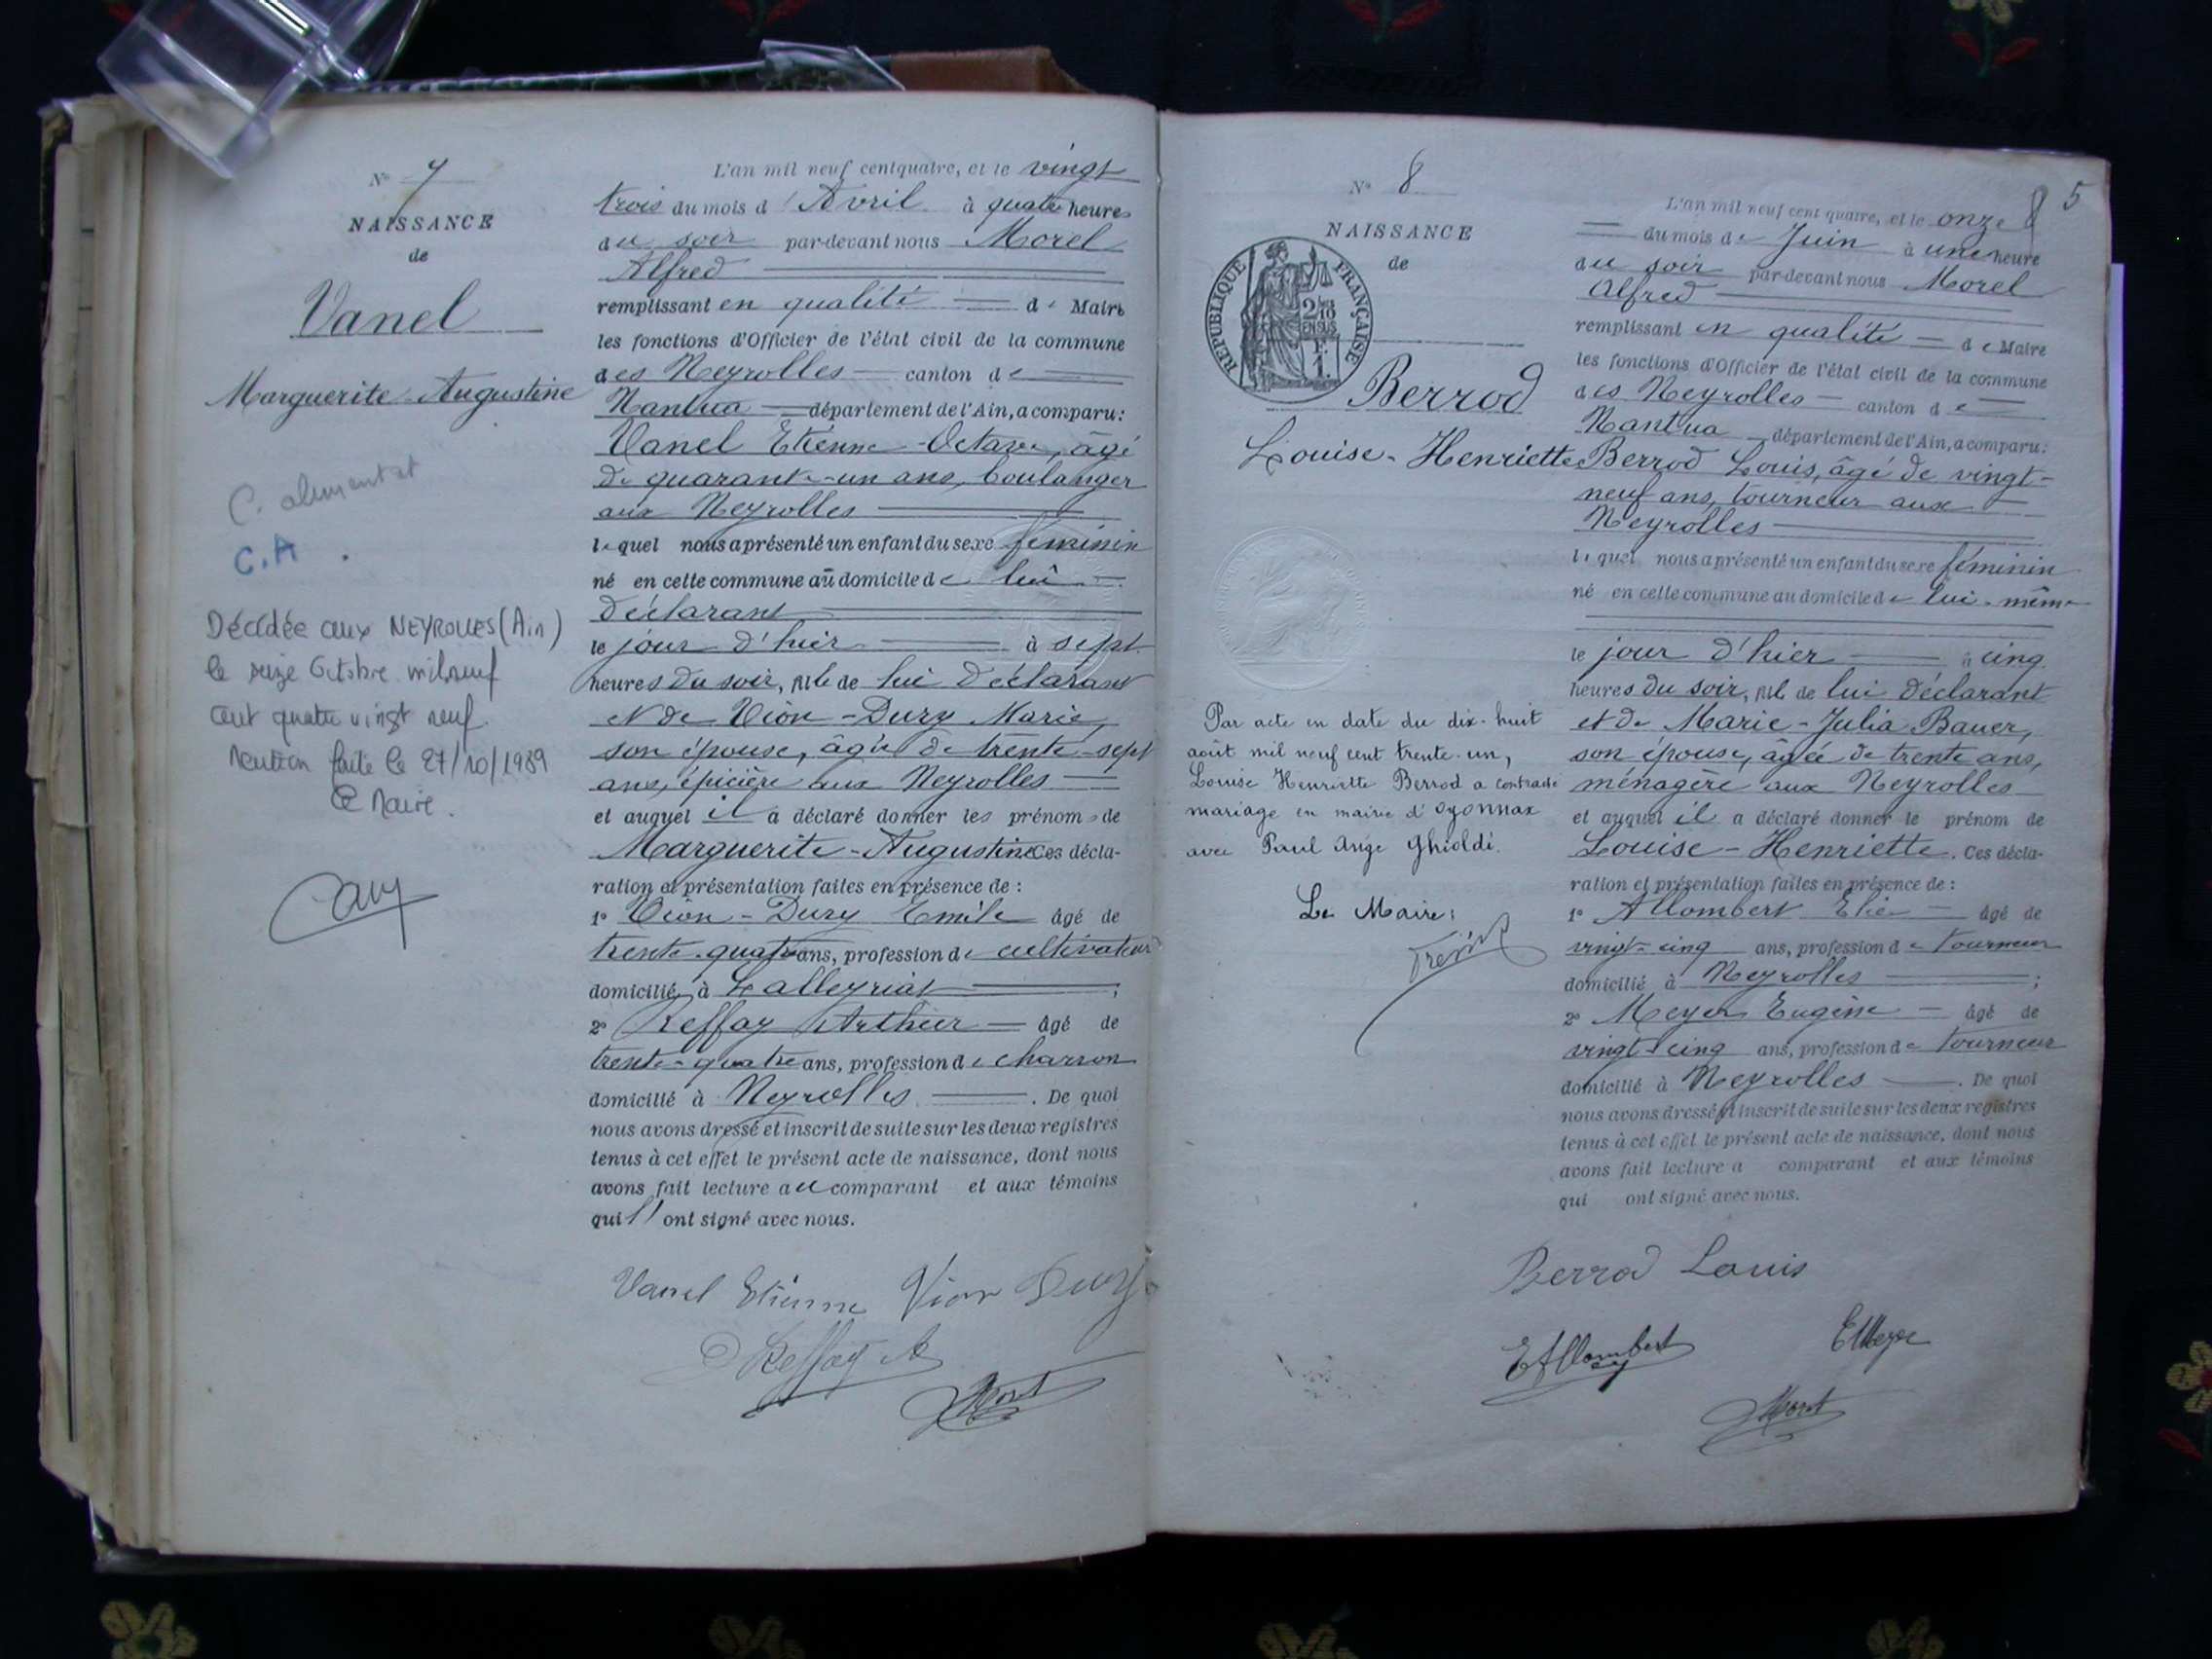 N° 7
NAISSANCE
de
Vanel
Marguerite-Augustine
C. alimentat
C.A.
Décédée aux NEYROLLES (Ain)
le seize Octobre mil neuf
cent quatre vingt neuf.
Mention faite le 27/10/1989
Le Maire.
L'an mil neuf cent quatre, et le vingt
trois du mois d'Avril à quatre heures
du soir par-devant nous Morel
Alfred
remplissant en qualité de Maire
les fonctions d'Officier de l'état civil de la commune
des Neyrolles canton de
Nantua département de l'Ain, a comparu:
Vanel Etienne-Octave, âgé
de quarante-un ans, boulanger
aux Neyrolles
lequel nous a présenté un enfant du sexe féminin
né en cette commune au domicile de lui
déclarant
le jour d'hier à sept
heures du soir, fille de lui déclarant
et de Vion-Dury Marie,
son épouse, âgée de trente-sept
ans, épicière aux Neyrolles
et auquel il a déclaré donner les prénoms de
Marguerite-Augustine Ces décla-
ration et présentation faites en présence de :
1° Vion-Dury Emile âgé de
trente-quatre ans, profession de cultivateur
domicilié à Lalleyriat ;
2° Reffay Arthur âgé de
trente-quatre ans, profession de charron
domicilié à Neyrolles . De quoi
nous avons dressé et inscrit de suite sur les deux registres
tenus à cet effet le présent acte de naissance, dont nous
avons fait lecture au comparant et aux témoins
qui l'ont signé avec nous.
Vanel Etienne Vion Dury
Reffay A
Morel
N° 8
NAISSANCE
de
REPUBLIQUE FRANÇAISE
2/10
EN SUS
F.
1.
Berrod
Louise-Henriette
Par acte en date du dix-huit
août mil neuf cent trente-un,
Louise Henriette Berrod a contracté
mariage en mairie d'Oyonnax
avec Paul Ange Ghioldi.
Le Maire:
8 5
L'an mil neuf cent quatre, et le onze
du mois de Juin à une heure
du soir par-devant nous Morel
Alfred
remplissant en qualité de Maire
les fonctions d'Officier de l'état civil de la commune
des Neyrolles canton de
Nantua département de l'Ain, a comparu:
Berrod Louis, âgé de vingt-
neuf ans, tourneur aux
Neyrolles
lequel nous a présenté un enfant du sexe féminin
né en cette commune au domicile de lui-même
le jour d'hier à cinq
heures du soir, fille de lui déclarant
et de Marie-Julia Bauer,
son épouse, âgée de trente ans,
ménagère aux Neyrolles
et auquel il a déclaré donner le prénom de
Louise-Henriette. Ces décla-
ration et présentation faites en présence de :
1° Allombert Elie âgé de
vingt-cinq ans, profession de tourneur
domicilié à Neyrolles ;
2° Meyer Eugène âgé de
vingt-cinq ans, profession de tourneur
domicilié à Neyrolles . De quoi
nous avons dressé et inscrit de suite sur les deux registres
tenus à cet effet le présent acte de naissance, dont nous
avons fait lecture a comparant et aux témoins
qui ont signé avec nous.
Berrod Louis
E Allombert E Meyer
Morel